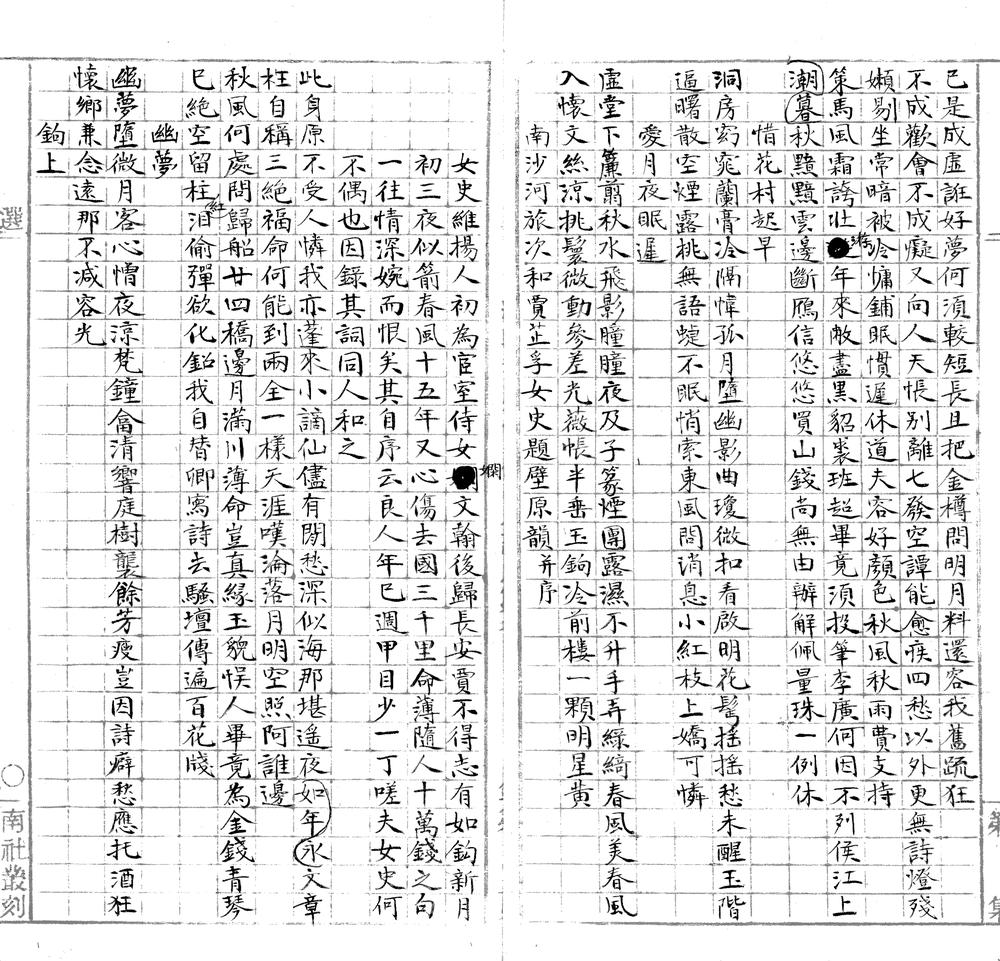 已是成虛誑好夢何須較短長且把金樽問明月料還容我舊疏狂
不成歡會不成癡又向人天悵别離七發空譚能愈疾四愁以外更無詩燈殘
嬾剔坐常暗被冷慵鋪眠慣遲休道夫容好顔色秋風秋雨費支持
策馬風霜誇壯遊年來敝盡黑貂裘班超畢竟須投筆李廣何因不列侯江上
潮暮秋黯黯雲邊斷鴈信悠悠買山錢尚無由辦解佩量珠一例休
惜花村起早
洞房窈窕蘭膏冷隔幃孤月墮幽影曲瓊微扣看啟明花髩摇摇愁未醒玉階
逼曙散空煙露挑無語䗖不眠悄索東風問消息小紅枝上嬌可憐
愛月夜眠遲
虛堂下簾翦秋水飛影瞳瞳夜及子篆煙團露濕不升手弄綠綺春風美春風
入懷文絲涼挑鬟微動參差光薇帳半垂玉鉤冷前樓一顆明星黄
南沙河旅次和賈芷孚女史題壁原韻并序
女史維揚人初為宦室侍女嫻文翰後歸長安賈不得志有如鈎新月
初三夜似箭春風十五年又心傷去國三千里命薄隨人十萬錢之句
一往情深婉而恨矣其自序云良人年已週甲目少一丁嗟夫女史何
不偶也因錄其詞同人和之
此身原不受人憐我亦蓬來小謫仙儘有閒愁深似海那堪遥夜如年永文章
枉自稱三絕福命何能到兩全一樣天涯嘆淪落月明空照阿誰邊
秋風何處問歸船廿四橋邊月滿川薄命豈真緣玉貌悮人畢竟為金錢青琴
已絕空留柱紅泪偷彈欲化鉛我自替卿寫詩去騷壇傳遍百花牋
幽夢
幽夢墮微月客心懵夜涼梵鐘龕清響庭樹襲餘芳瘦豈因詩癖愁應托酒狂
懷鄉兼念遠那不减容光
鉤上
選
南社叢刻
集